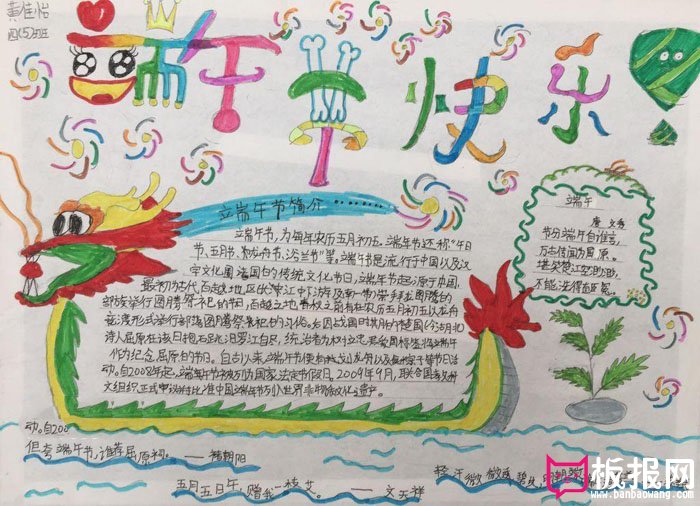 黄佳怡
四(5)班
端午节快乐
端午节简介
端午节,为每年农历五月初五。端午节还称“午日
节、五月节、
等。端午节是流行于中国以及汉
字文化圈诸国的传统文化节日,端午节起源于中国,
最初为古代百越地区(长江中下游及南一带)崇拜龙图腾的
部族举行图腾祭祀的节日,百越之地春秋之前有在农历五月初五以龙舟
竞渡形式举行部落图腾祭祀的习俗。后因战国时期的楚国
诗人屈原在该日抱石跳汨罗江自尽,统治者为树立忠君爱国标签将端午
作为纪念屈原的节日。自古以来端午节便有
等节日活
动。自2008年起,端午节被列为国家法定节假日。2009年9月,联合国教科
文组织正式审议并批准中国端午节列入世界非物质文化遗产。
端午
唐 文秀
节分端午自谁言,
万古传闻为屈原。
堪笑楚江空渺渺,
不能洗得直臣冤。
动。自200
但夸端午节,谁荐屈原祠。——褚朝阳
五月五日午,赠我一枝艾。——文天祥
轻汗微微透碧
板报网
www.banbaowang.com